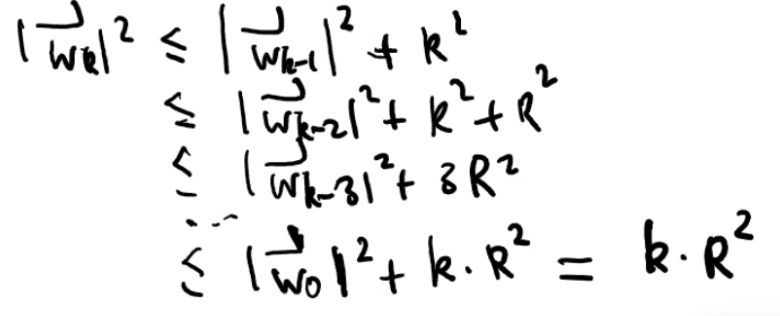 |w⃗k|² ≤ |w⃗k-1|² + R²
≤ |w⃗k-2|² + R² + R²
≤ |w⃗k-3|² + 3R²
...
≤ |w⃗0|² + k·R² = k·R²